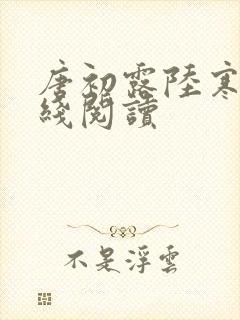 唐初露陸寒
綫閱讀
不是浮雲